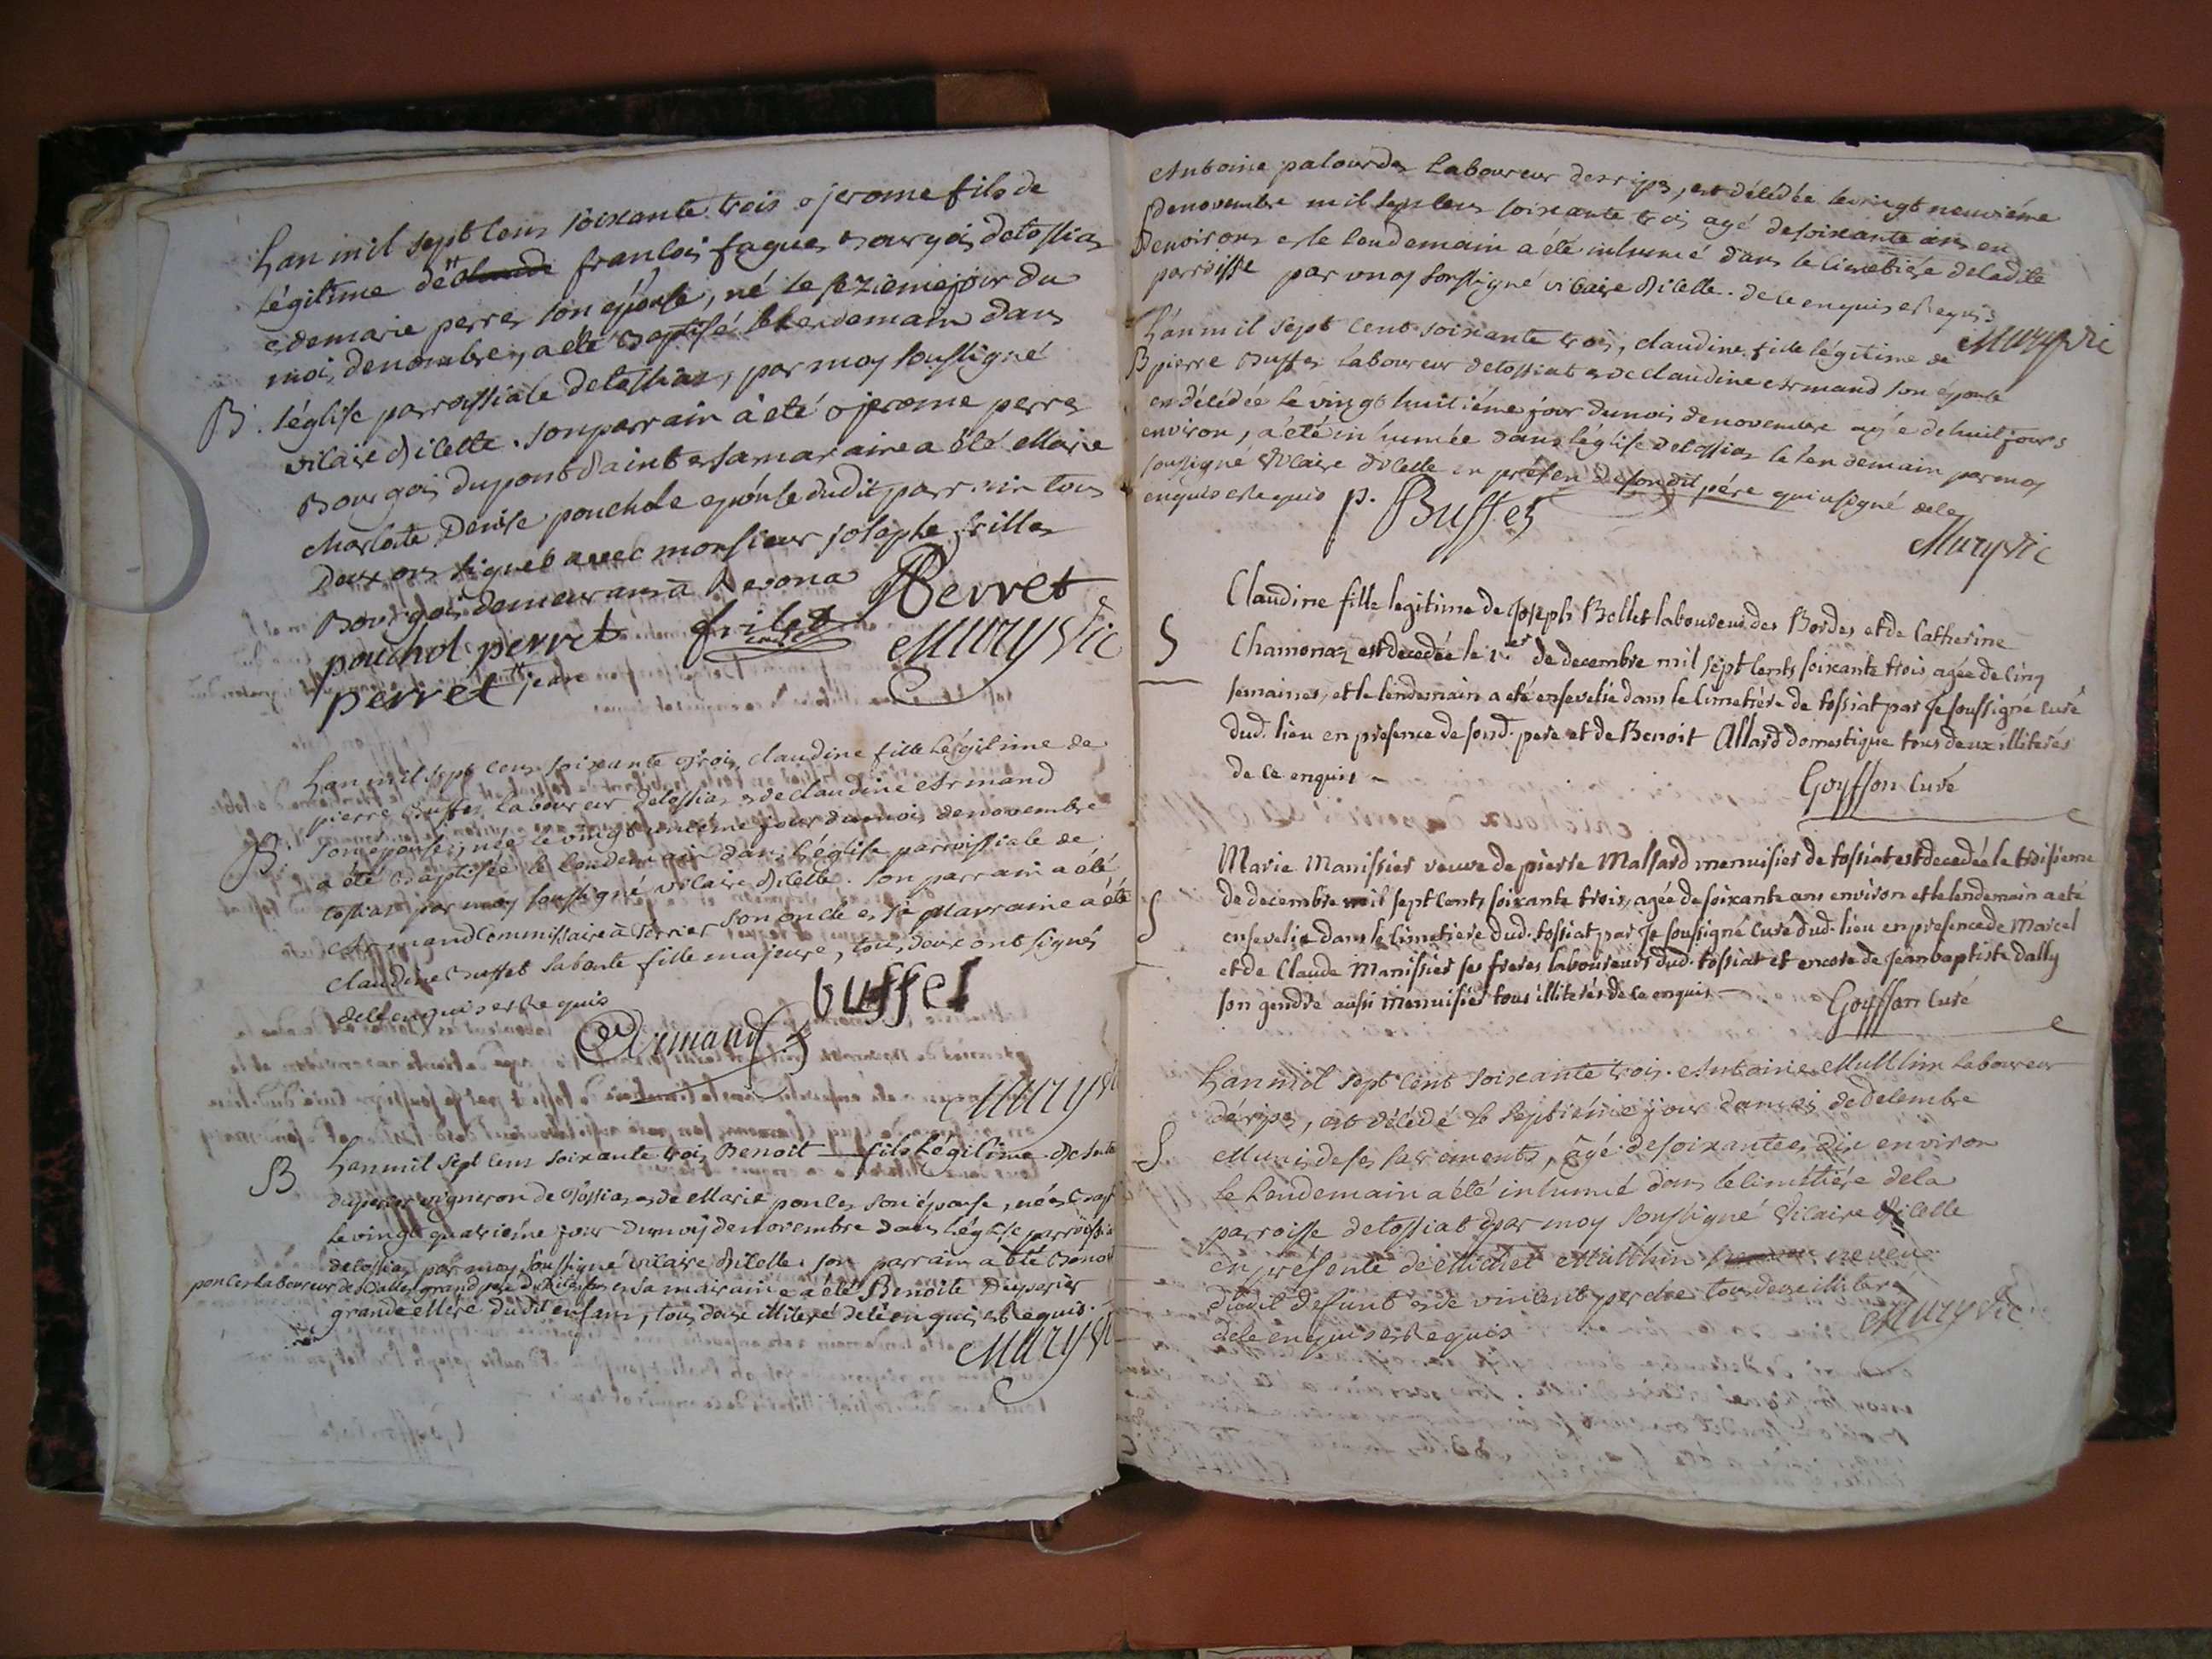 Lan mil sept cens soixante trois jerome fils de
légitime de claude francois fagues Bourgois de tossiat
& de marie perret son épouse, né le sezieme jour du
moi de novembre, a été Baptisé le lendemain dans
B. l'église parroissiale de tossiat, par moy soussigné
vicaire dicelle. son parrain à été jerome perret
Bourgois du pont d'aint & sa maraine a été Marie
charlote Denise pouchol epouse dudit parrain tous
Deux ont signes avec monsieur joseph frillet
Bourgois demeurant à
pouchol perret frilet Perret
perret jean Mury Vic
Lan mil sept cens soixante trois, claudine fille légitime de
pierre Buffet Laboureur de tossiat & de claudine Armand
B. son epouse, née le vingt unieme jour du mois de novembre
a été Baptisée le lendemain dans l'église parroissiale de
tossiat par moy soussigné vicaire dicelle. son parrain a été
Armand Commissaire à son oncle et sa Marraine a été
claudine Buffet sa tante fille majeure, tous deux ont signés
de ce enquis et Requis
buffet
Armand
Mury Vi
B Lan mil sept cens soixante trois Benoit fils Légitime
vigneron de Tossiat & de Marie poncet son épouse, né &
le vingt quatrieme jour du moy de novembre dans l'église parroissia
de tossiat par moy soussigné vicaire dicelle. son parrain a été Benoit
poncet Laboureur de grand pere dudit enfant et sa mairaine a été Benoite
grande Mère dudit enfant, tous deux illiteré de ce enquis et Requis.
Mury Vi
Antoine palourdet Laboureur de rips, est décédée le vingt neuvième
de novembre mil sept cens soixante trois agé de soixante ans en
S environs et le lendemain a été inhumé dans le cimetière de ladite
parroisse par moy soussigné vicaire dicelle. de ce enquis et requis
Mury Vic
Lan mil sept cent soixante trois, claudine fille légitime de
B pierre Buffet Laboureur de tossiat & de claudine Armand son épouse
est décédée le vingt huitiéme jour du mois de novembre agée de huit jours
environ, a été inhumée dans l'église de tossiat le lendemain par moy
soussigné Vicaire dicelle en présence de son dit père qui a signé de ce
enquis et requis p. Buffet
Mury Vic
Claudine fille legitime de Joseph Bollet laboureur des Bordes et de Catherine
S Chamonaz est decedée le 1.er de decembre mil sept cents soixante trois, agée de cinq
semaines, et le lendemain a eté ensevelie dans le cimetiére de tossiat par je soussigné curé
dud. lieu en presence de sond. pere et de Benoit Allard domestique tous deux illiterés
de ce enquis
Goyffon Curé
Marie Manissier veuve de pierre Malfard menuisier de tossiat est decedée le troisieme
de decembre mil sept cents soixante trois, agée de soixante ans environ et le lendemain a eté
S ensevelie dans le cimetiere dud. tossiat par je soussigné curé dud. lieu en presence de Marcel
et de Claude Manissier ses freres laboureurs dud. tossiat et encore de jean baptiste dally
son gendre aussi menuisier tous illiterés de ce enquis
Goyffon Curé
Lan mil sept cent soixante trois. Antoine Mullin Laboureur
de rips, est décédé le septième jour du mois de Decembre
S Muni de ses sacrements, âgé de soixante et dix environ
le Lendemain a été inhumé dans le cimetière de la
parroisse de tossiat par moy soussigné Vicaire dicelle
en présence de Michel Mullin neveu
dudit defunt et de vincent tous deux illiteré
de ce enquis et Requis Mury Vic